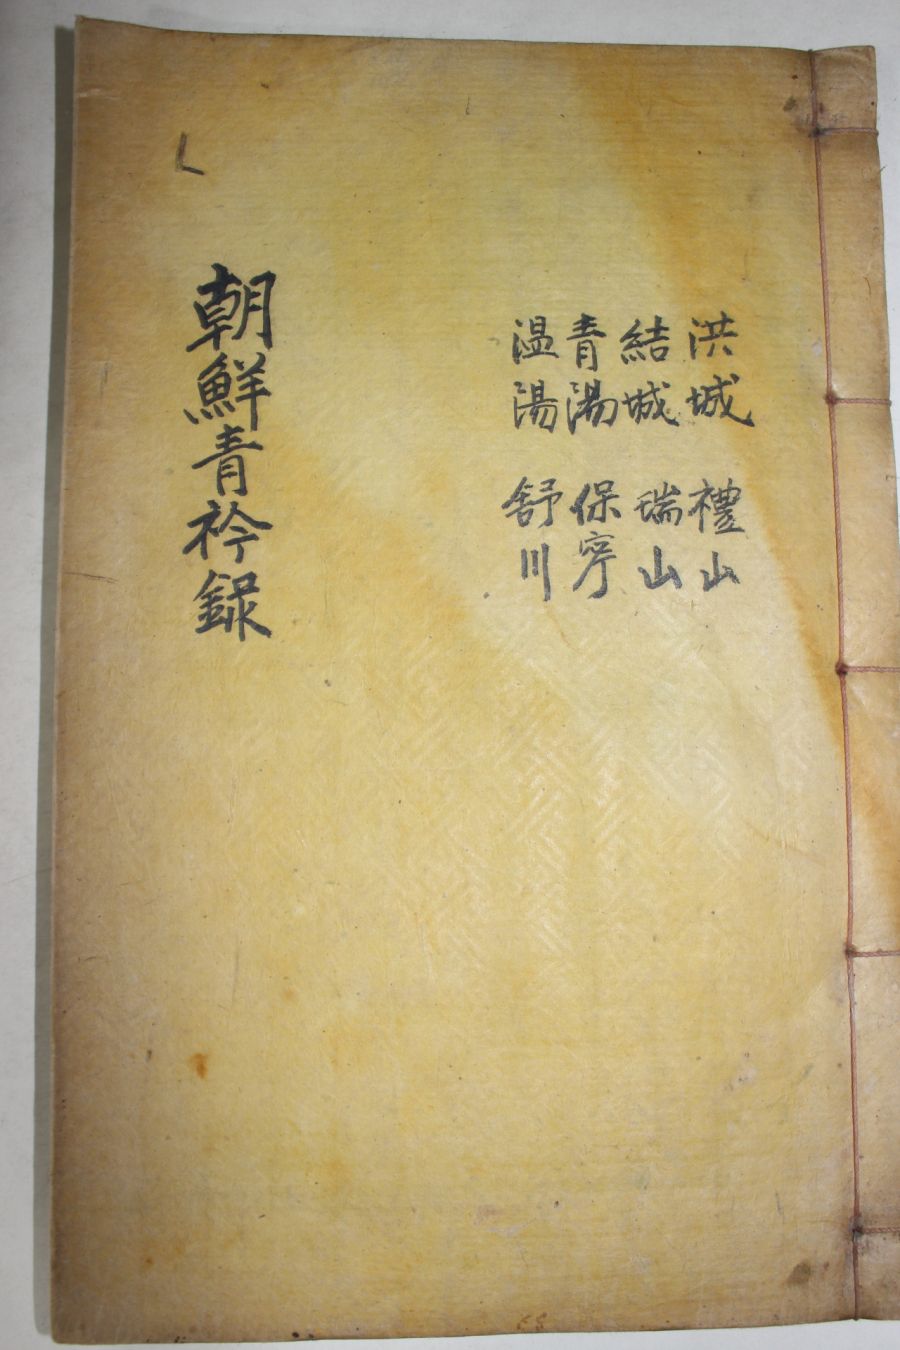 洪城 禮山
結城 瑞山
青湯 保寧
温湯 舒川
朝鮮青衿録